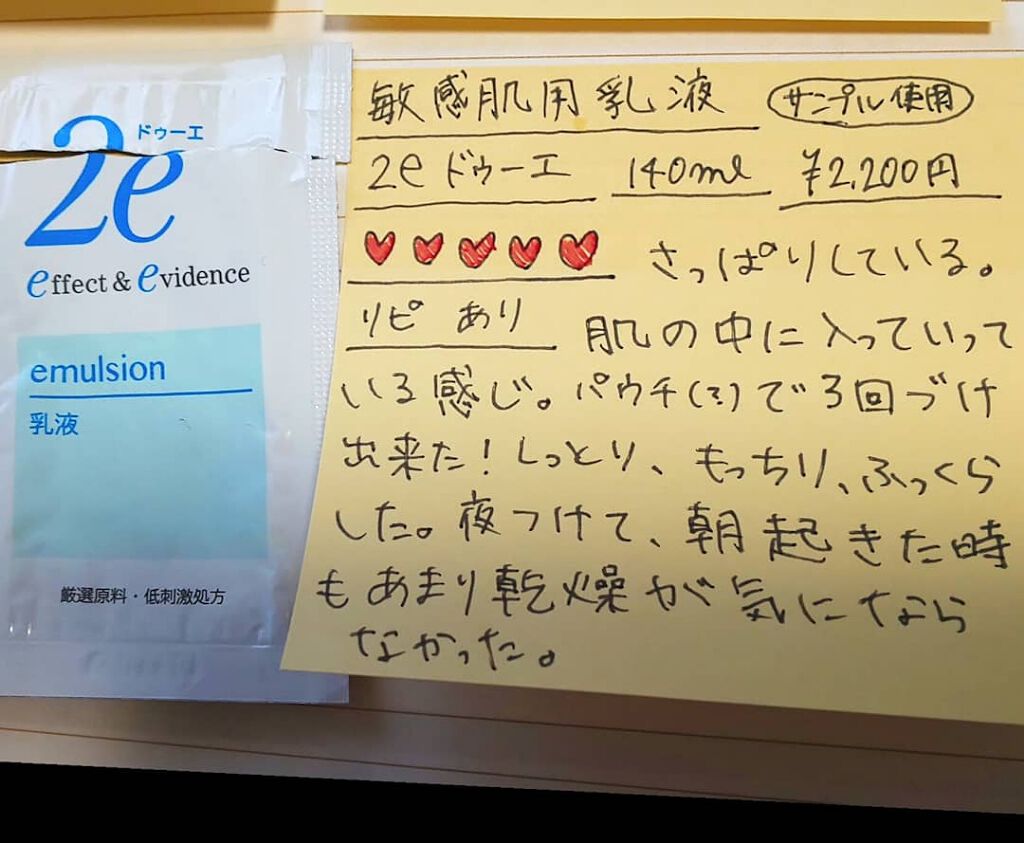 2e ドゥーエ
effect & evidence
emulsion
乳液
厳選原料・低刺激処方
敏感肌用乳液 サンプル使用
2e ドゥーエ 140ml ¥2,200円
さっぱりしている。
リピ あり 肌の中に入っていって
いる感じ。パウチ(?)で3回づけ
出来た!しっとり、もっちり、ふっくら
した。夜つけて、朝起きた時
もあまり乾燥が気になら
なかった。